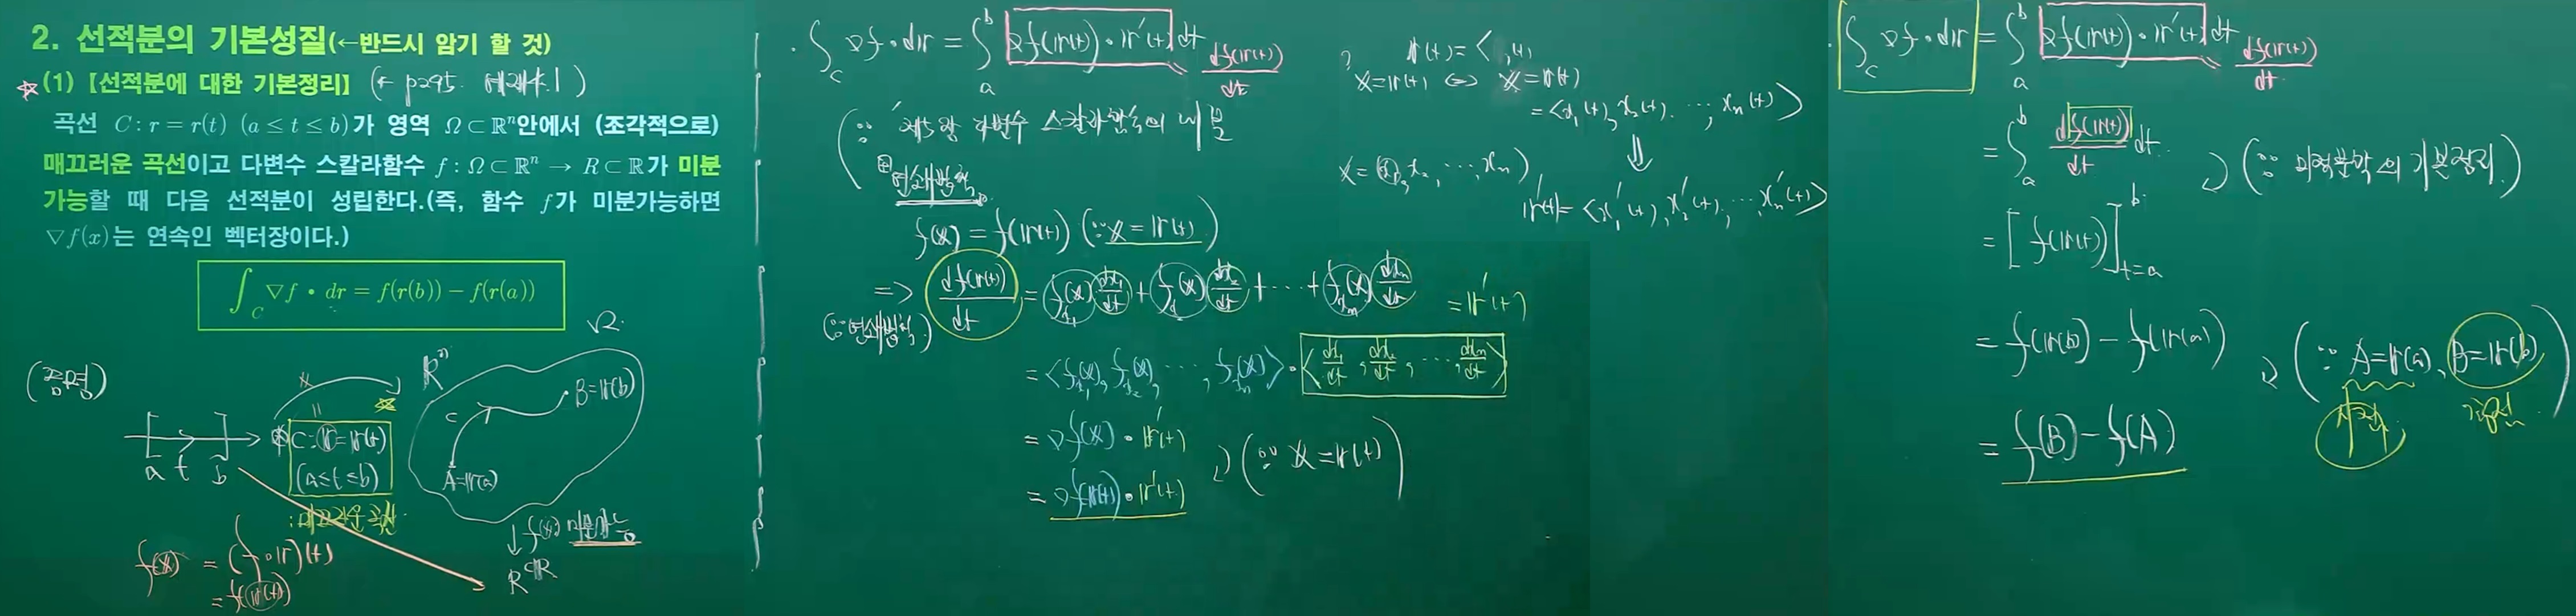 2. 선적분의 기본성질(←반드시 암기 할 것)
☆(1) 【선적분에 대한 기본정리】 (← p295.
곡선 C : r = r(t) (a ≤ t ≤ b)가 영역 Ω⊂ℝⁿ안에서 (조각적으로)
매끄러운 곡선이고 다변수 스칼라함수 f : Ω⊂ℝⁿ → R⊂ℝ가 미분
가능할 때 다음 선적분이 성립한다.(즉, 함수 f가 미분가능하면
∇f(x)는 연속인 벡터장이다.)
∫_C ∇f • dr = f(r(b)) − f(r(a))
(증명)
a t b
C: r = r(t)
(a≤t≤b)
: 매끄러운 곡선
ℝⁿ
Ω
C
A=r(a)
B=r(b)
↓ f(x) 미분가능
R⊂ℝ
f(x) = (f∘r)(t)
= f(r(t))
∫_C ∇f • dr = ∫_a^b ∇f(r(t)) • r'(t) dt
df(r(t))/dt
(∵ 제5장 다변수 스칼라함수의 미분
연쇄법칙
f(x) = f(r(t)) (∵ x = r(t))
=> df(r(t))/dt = f_{x_1}(x) dx_1/dt + f_{x_2}(x) dx_2/dt + ⋯ + f_{x_n}(x) dx_n/dt
(∵ 연쇄법칙)
= r'(t)
= <f_{x_1}(x), f_{x_2}(x), ⋯, f_{x_n}(x)> • <dx_1/dt, dx_2/dt, ⋯, dx_n/dt>
= ∇f(x) • r'(t)
= ∇f(r(t)) • r'(t) (∵ x = r(t))
r(t) = < , (t)
x = r(t) <=> x = r(t)
= <x_1(t), x_2(t), ⋯, x_n(t)>
⇓
x = (x_1, x_2, ⋯, x_n)
r'(t) = <x_1'(t), x_2'(t), ⋯, x_n'(t)>
∫_C ∇f • dr = ∫_a^b ∇f(r(t)) • r'(t) dt
df(r(t))/dt
= ∫_a^b df(r(t))/dt dt (∵ 미적분학의 기본정리)
= [f(r(t))]_{t=a}^b
= f(r(b)) − f(r(a))
(∵ A=r(a), B=r(b))
시점
= f(B) − f(A)